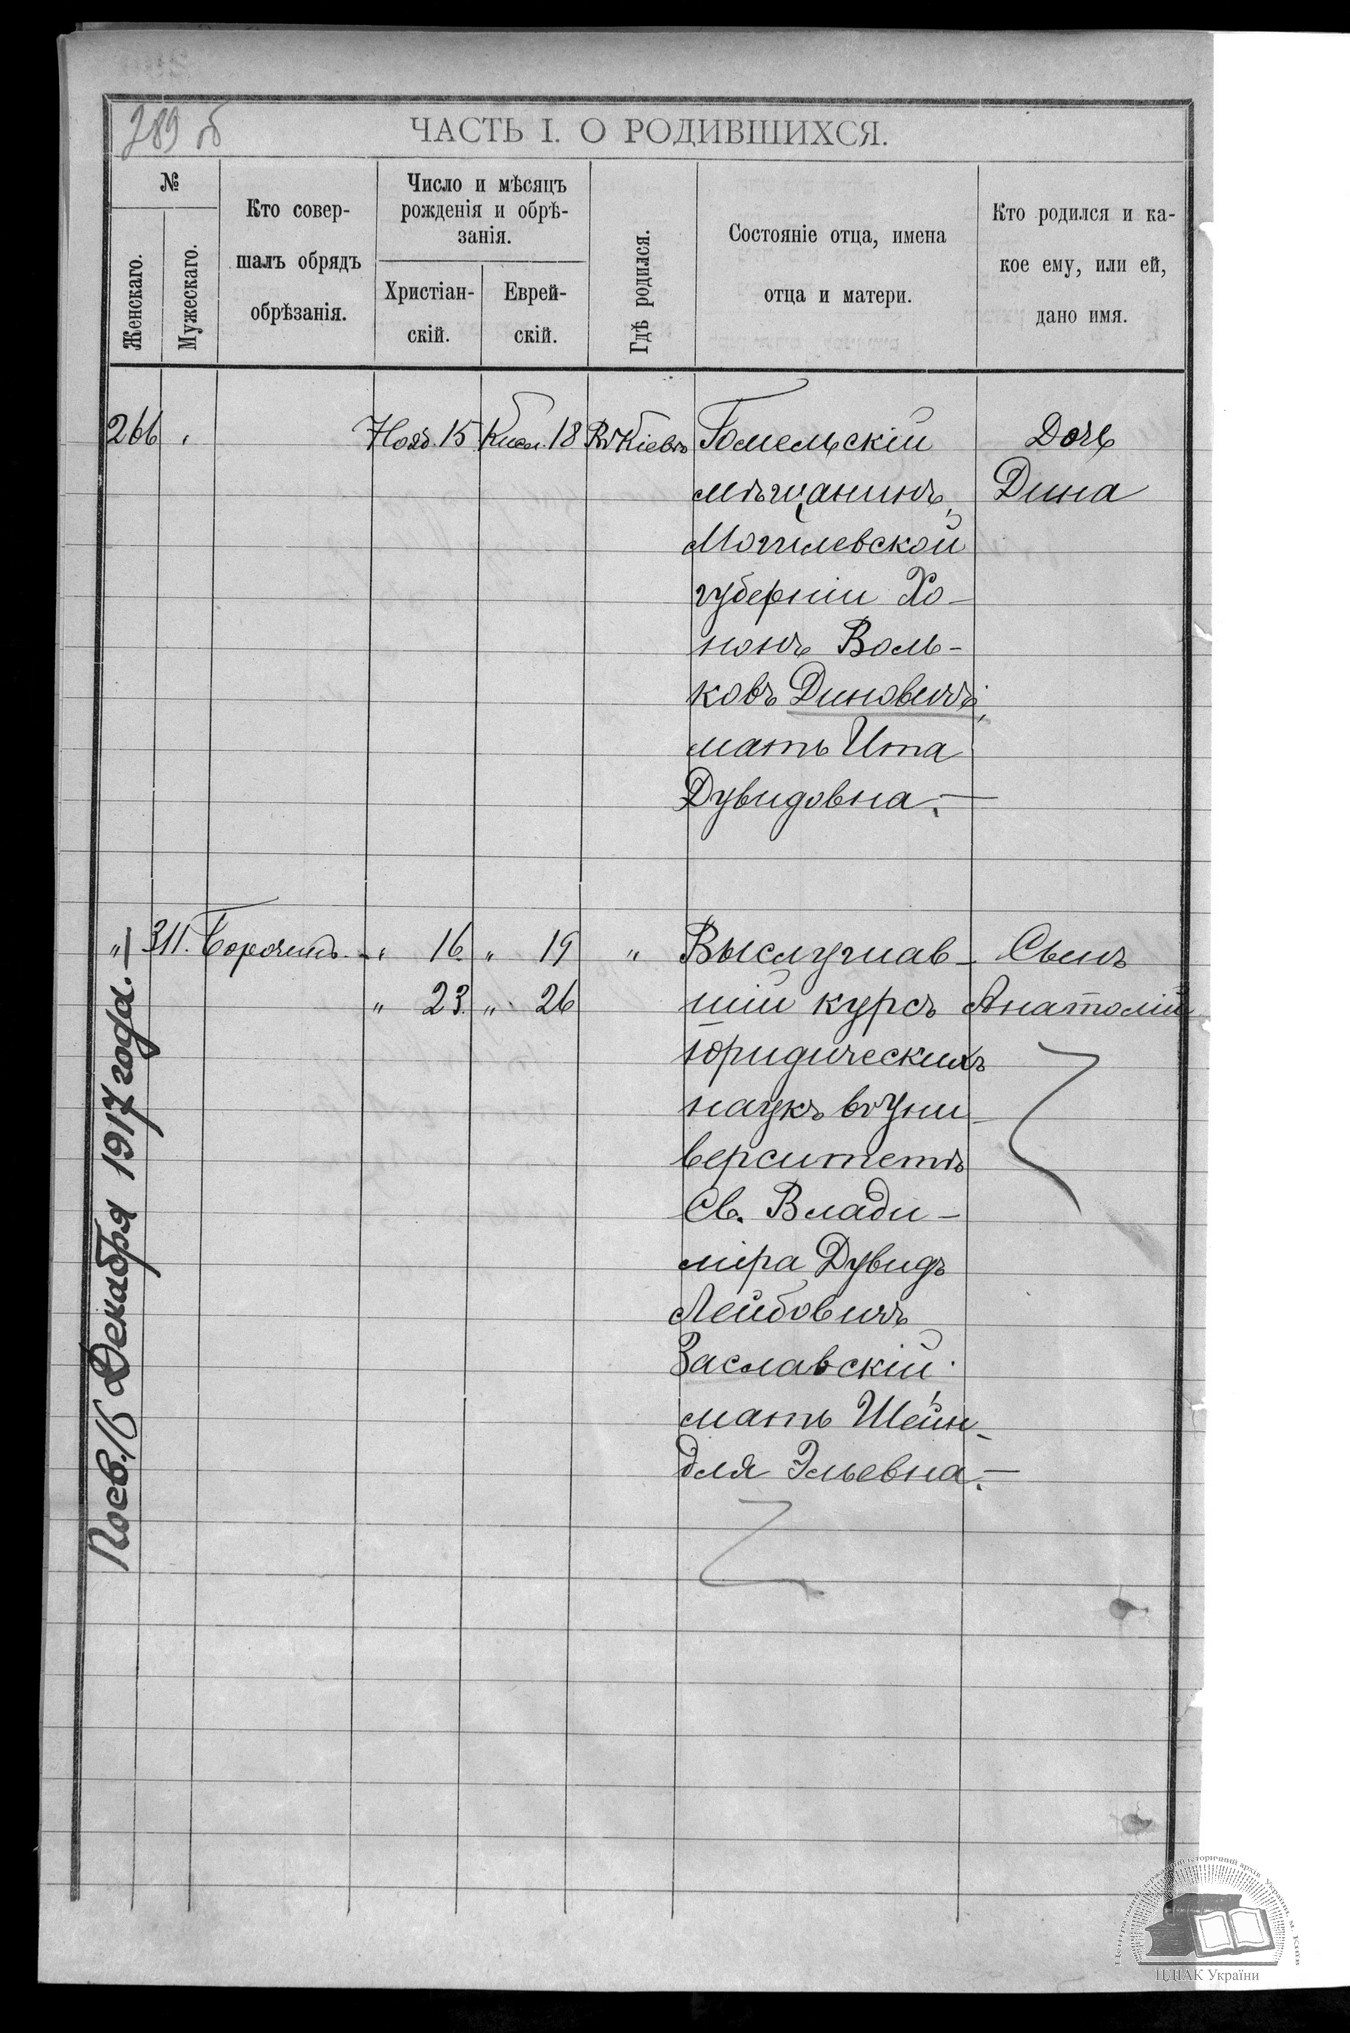 289 об
ЧАСТЬ I. О РОДИВШИХСЯ.
№
Женскаго.
Мужескаго.
Кто совер-
шалъ обрядъ
обрѣзанія.
Число и мѣсяцъ
рожденія и обрѣ-
занія.
Христіан-
скій.
Еврей-
скій.
Гдѣ родился.
Состояніе отца, имена
отца и матери.
Кто родился и ка-
кое ему, или ей,
дано имя.
266 Нояб. 15 Кисл. 18 Въ Кіевѣ Гомельскій Дочь
мѣщанинъ, Дина
Могилевской
губерніи Хо-
нонъ Воль-
ковъ Диновичъ,
мать Ита
Дувидовна.—
„ 311. Борочинъ.— „ 16. „ 19 „ Выслушав- Сынъ
„ 23. „ 26 шій курсъ Анатолій
юридическихъ
наукъ въ Уни-
верситетѣ
Св. Влади-
міра Дувидъ
Лейбовичъ
Заславскій,
мать Шейн-
для Эльевна.—
Посв. 15 Декабря 1917 года.—
Центральний державний історичний архів України, м. Київ
ЦДІАК України